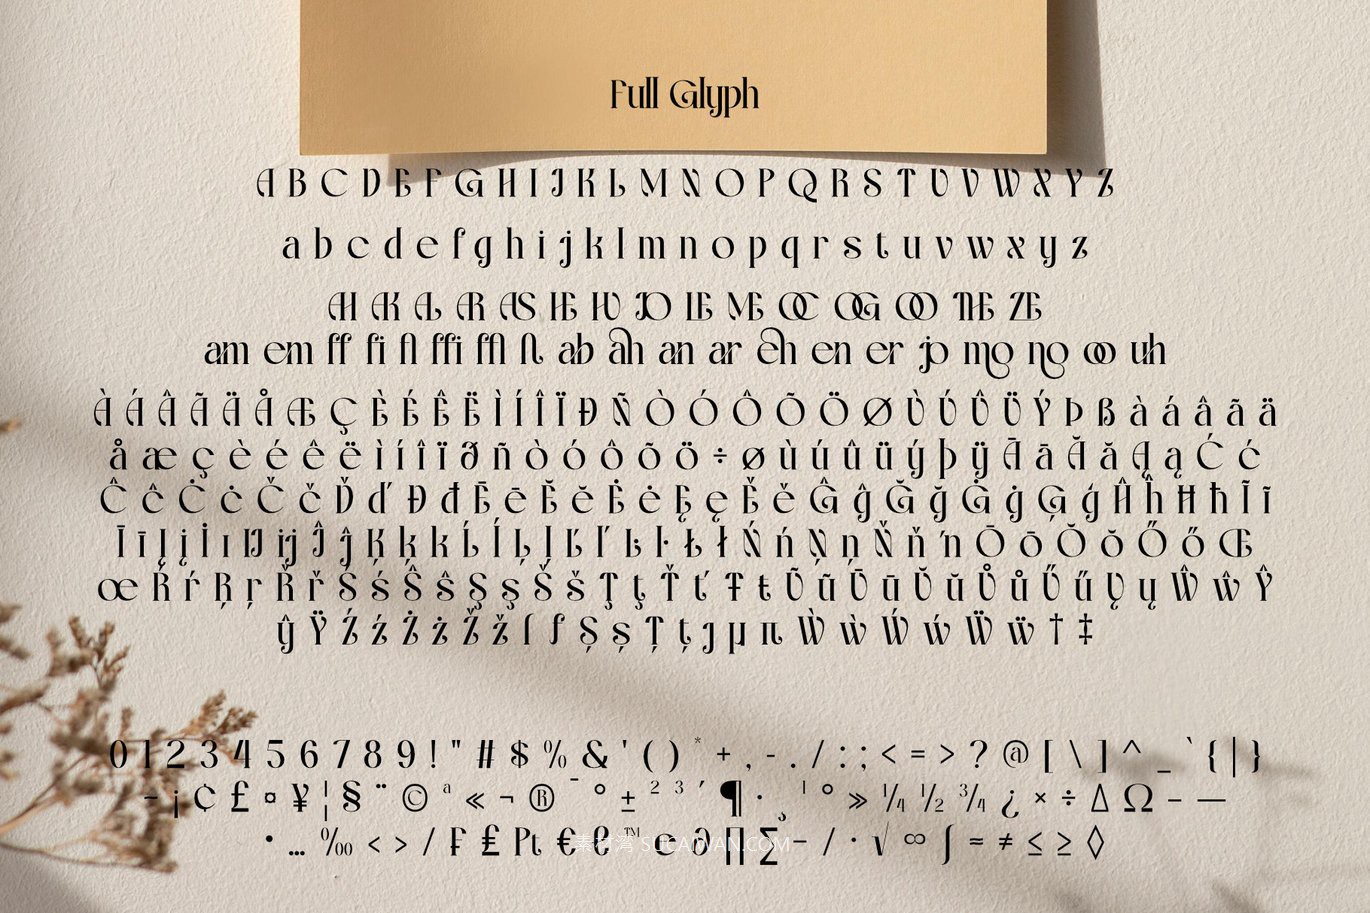 Full Glyph
A B C D E F G H I J K L M N O P Q R S T U V W X Y Z
a b c d e f g h i j k l m n o p q r s t u v w x y z
AI AK AL AR AS HE HU JO LE ME OC OG OO THE ZE
am em ff fi fl ffi ffl fl ab ah an ar eh en er jo mo no oo uh
À Á Â Ã Ä Å Æ Ç È É Ê Ë Ì Í Î Ï Ð Ñ Ò Ó Ô Õ Ö Ø Ù Ú Û Ü Ý Þ ß à á â ã ä
å æ ç è é ê ë ì í î ï ð ñ ò ó ô õ ö ÷ ø ù ú û ü ý þ ÿ Ā ā Ă ă Ą ą Ć ć
Ĉ ĉ Ċ ċ Č č Ď ď Đ đ Ē ē Ĕ ĕ Ė ė Ę ę Ě ě Ĝ ĝ Ğ ğ Ġ ġ Ģ ģ Ĥ ĥ Ħ ħ Ĩ ĩ
Ī ī Į į İ ı Ĳ ĳ Ĵ ĵ Ķ ķ ĸ Ĺ Í Ļ Į Ľ ľ Ŀ ŀ Ł ł Ń ń Ņ ņ Ň ň ŉ Ō ō Ŏ ŏ Ő ő Œ
œ Ŕ ŕ Ŗ ŗ Ř ř Ś ś Ŝ ŝ Ş ş Š š Ţ ţ Ť ť Ŧ ŧ Ũ ũ Ū ū Ŭ ŭ Ů ů Ű ű Ų ų Ŵ ŵ Ŷ
ŷ Ÿ Ź ź Ż ż Ž ž ſ ƒ Ș ș Ț ț ȷ µ π Ẁ ẁ Ẃ ẃ Ẅ ẅ † ‡
0 1 2 3 4 5 6 7 8 9 ! " # $ % & ' ( ) * + , - . / : ; < = > ? @ [ \ ] ^ _ ` { | }
– ¡ ¢ £ ¤ ¥ ¦ § ¨ © ª « ¬ ® ¯ ° ± ² ³ ´ ¶ · ¸ ¹ º » ¼ ½ ¾ ¿ × ÷ Δ Ω – —
• … ‰ ‹ › / ₣ ₤ Pt € ℓ ™ ℮ ∂ ∏ ∑ − / · √ ∞ ∫ ≈ ≠ ≤ ≥ ◊
素材湾 SUCAIWAN.COM